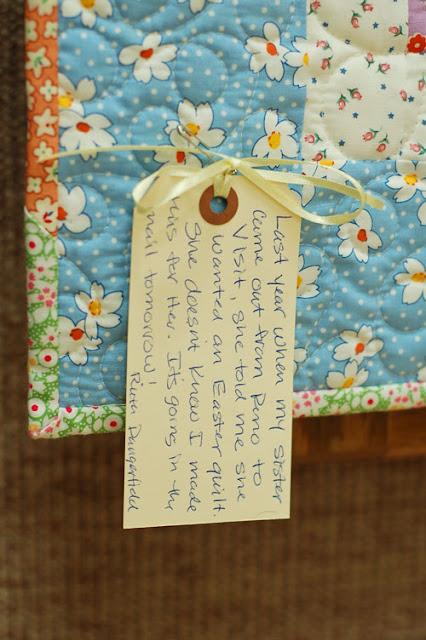 Last year when my sister
came out from Reno to
visit, she told me she
wanted an Easter quilt.
She doesn't know I made
this for her. It's going in the
mail tomorrow!
Ruth Dangerfield